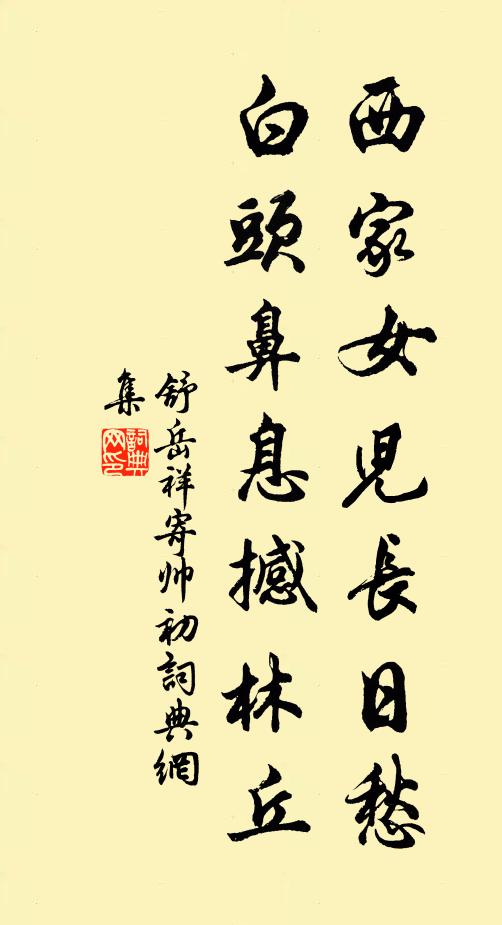 西家女児長日愁
白頭鼻息撼林丘
舒岳祥寄帅初詞典網
集
詞典
网印